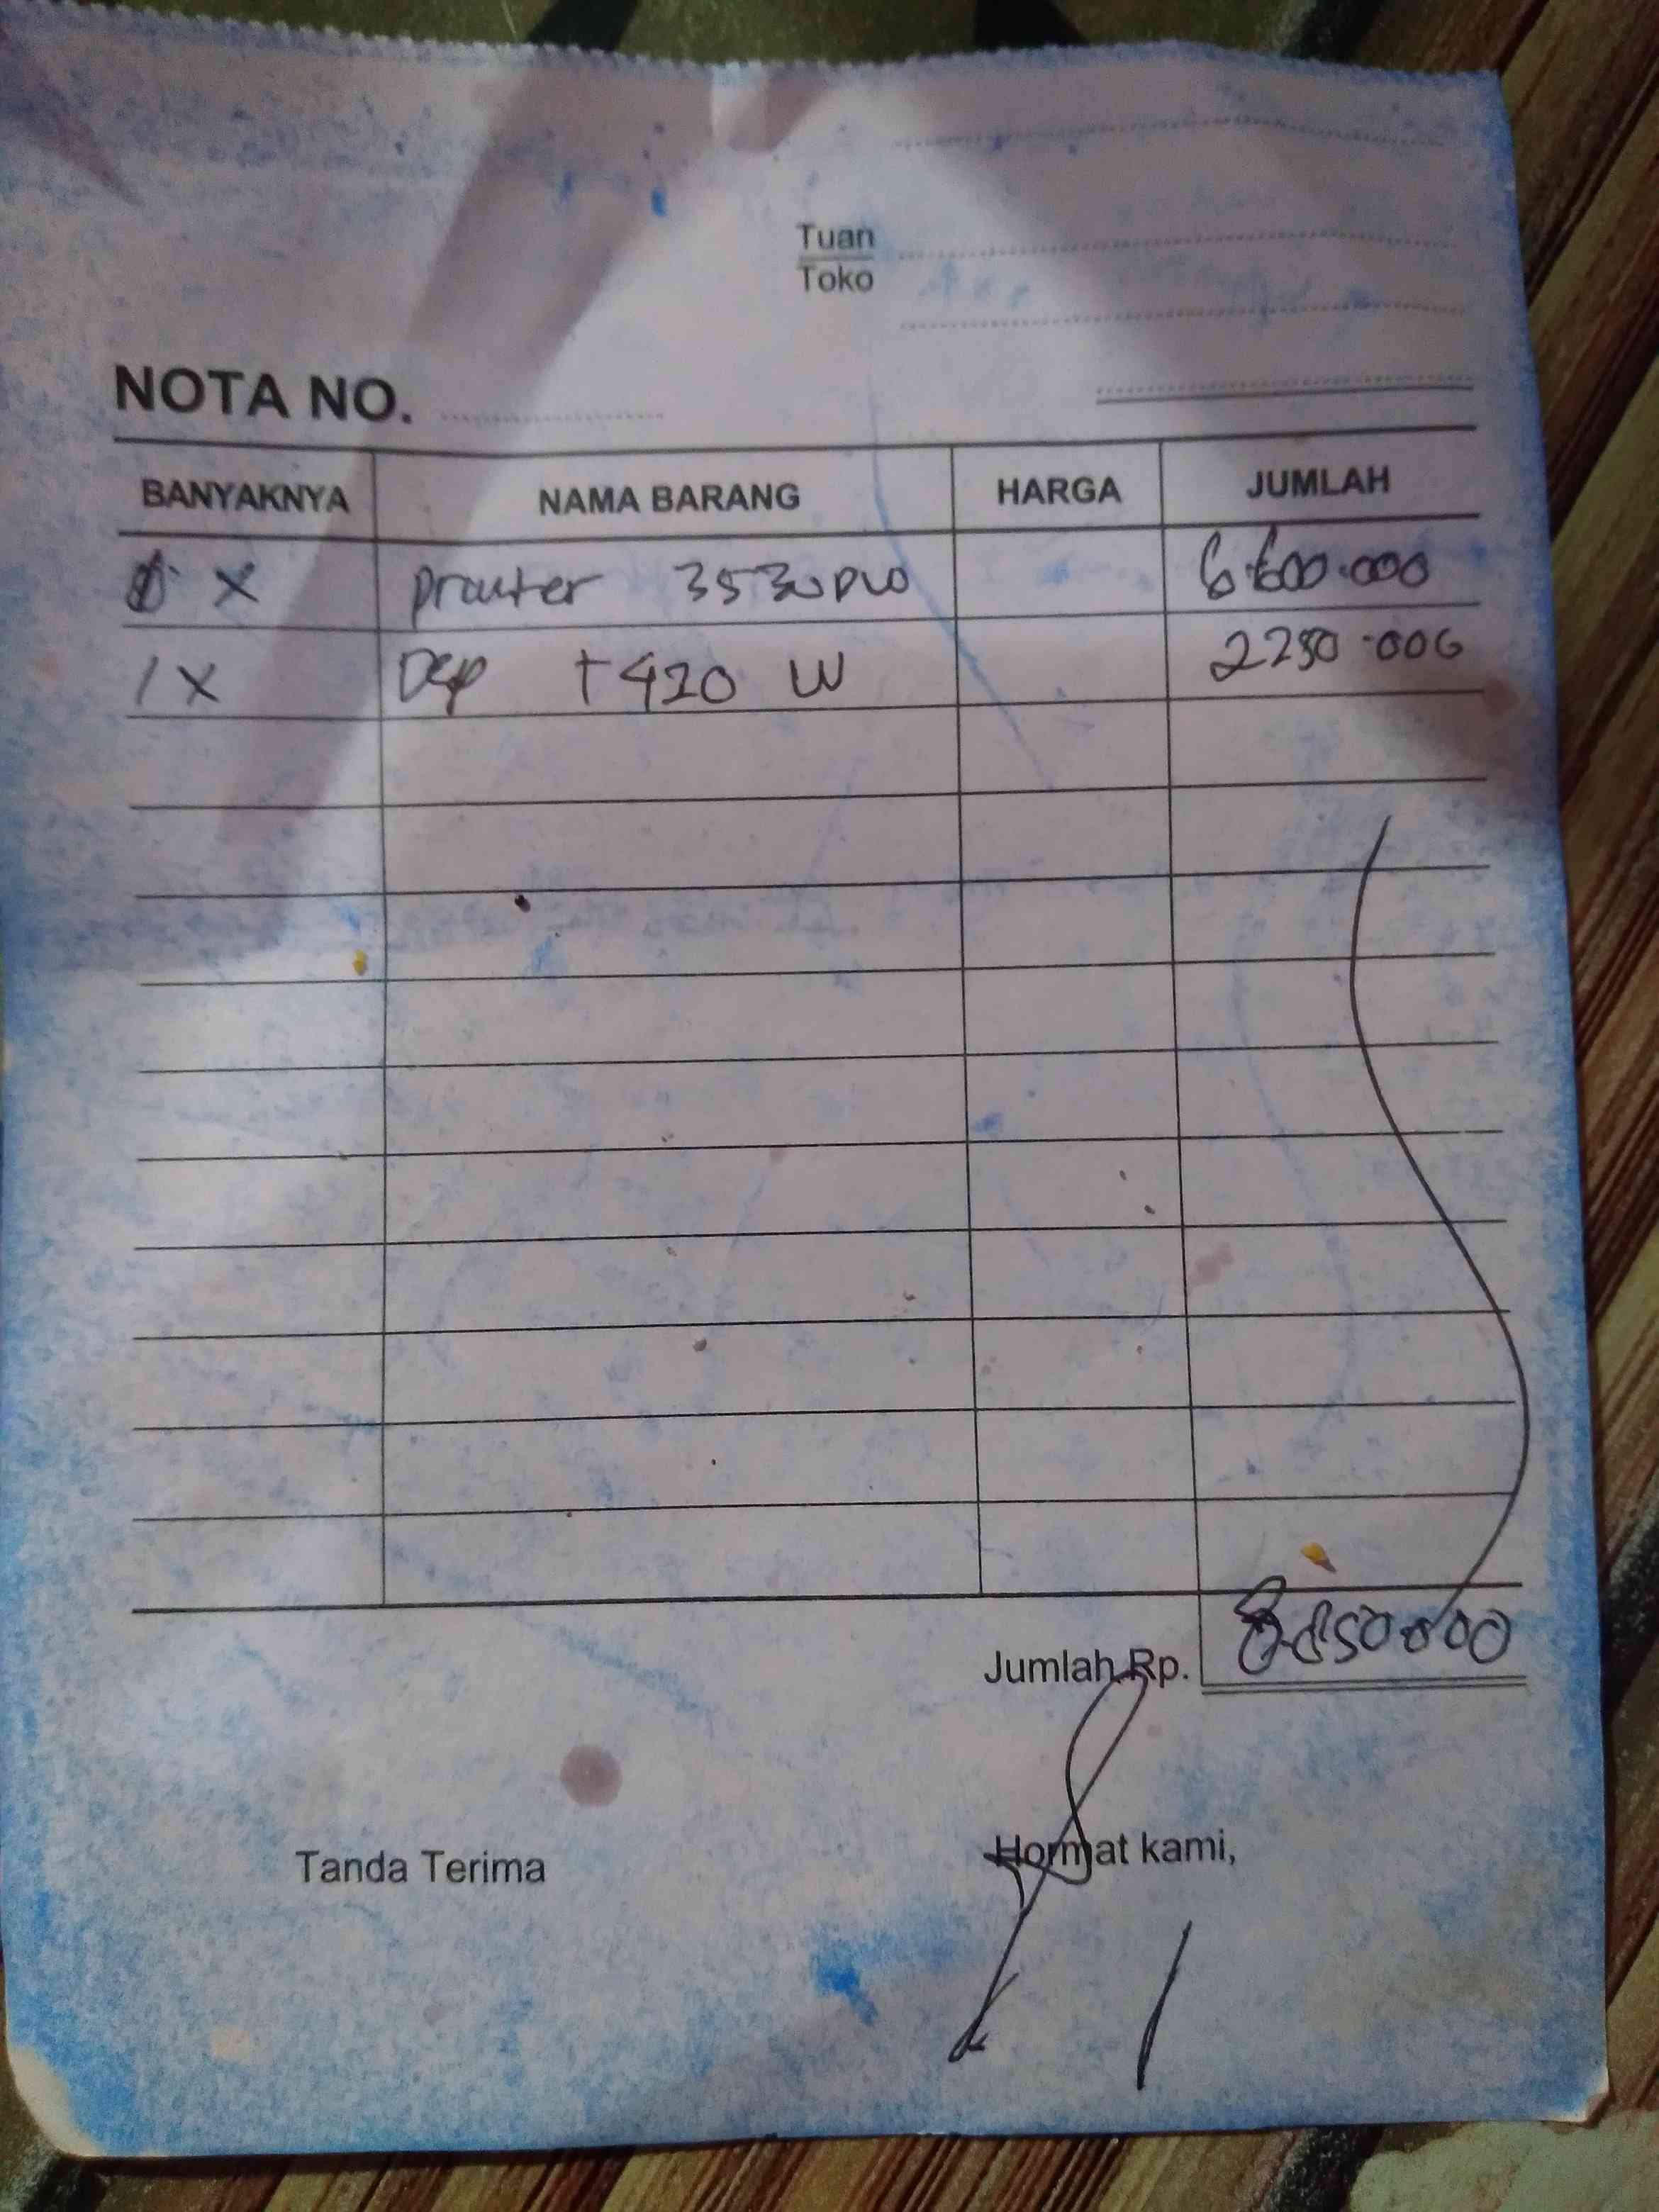 Tuan
Toko
NOTA NO.
BANYAKNYA NAMA BARANG HARGA JUMLAH
X 3530 6.600.000
1 X T420 W 2250.000
Jumlah Rp. 8.850.000
Tanda Terima Hormat kami,